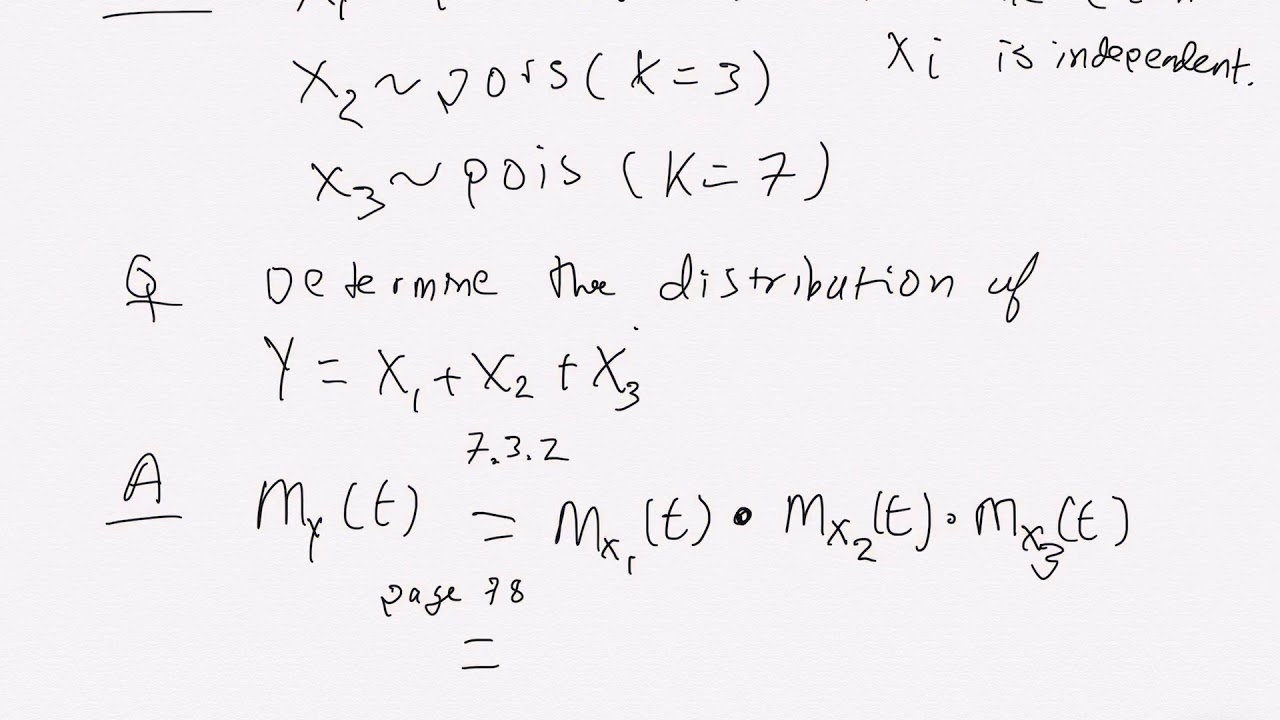 Xi is independent.
X2 ~ pois (K=3)
X3 ~ pois (K=7)
Q Determine the distribution of
Y = X1 + X2 + X3
7.3.2
A My(t) = Mx1(t) • Mx2(t) . Mx3(t)
page 78
=